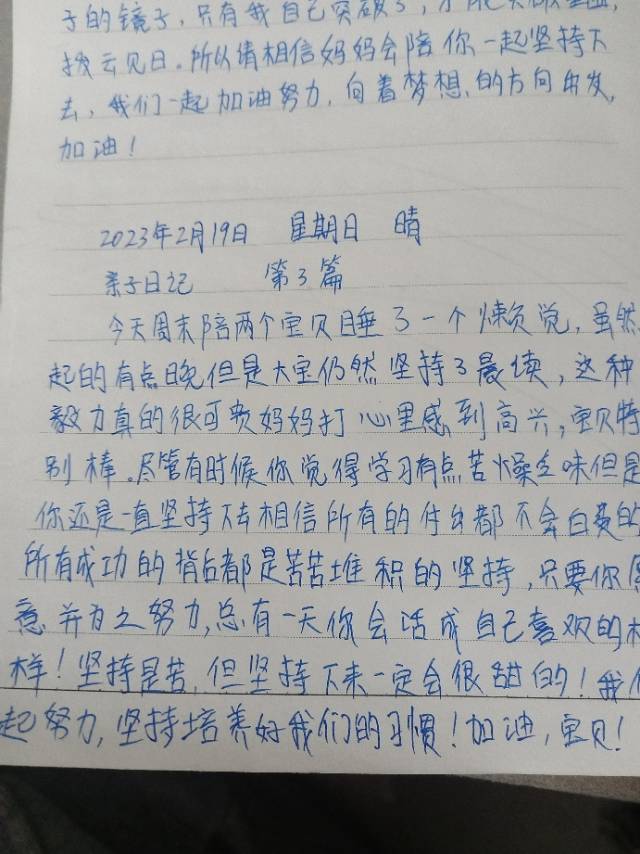 子的镜子，只有我自己突破了，才能
拨云见日。所以请相信妈妈会陪你一起坚持下
去，我们一起加油努力，向着梦想，的方向出发，
加油！
2023年2月19日 星期日 晴
亲子日记 第3篇
今天周末陪两个宝贝睡了一个懒觉，虽然
起的有点晚但是大宝仍然坚持了晨读，这种
毅力真的很可贵妈妈打心里感到高兴，宝贝特
别棒。尽管有时候你觉得学习有点苦燥乏味但是
你还是一直坚持下去相信所有的付出都不会白费的
所有成功的背后都是苦苦堆积的坚持，只要你愿
意并为之努力，总有一天你会活成自己喜欢的模
样！坚持是苦，但坚持下来一定会很甜的！我们
起努力，坚持培养好我们的习惯！加油，宝贝！